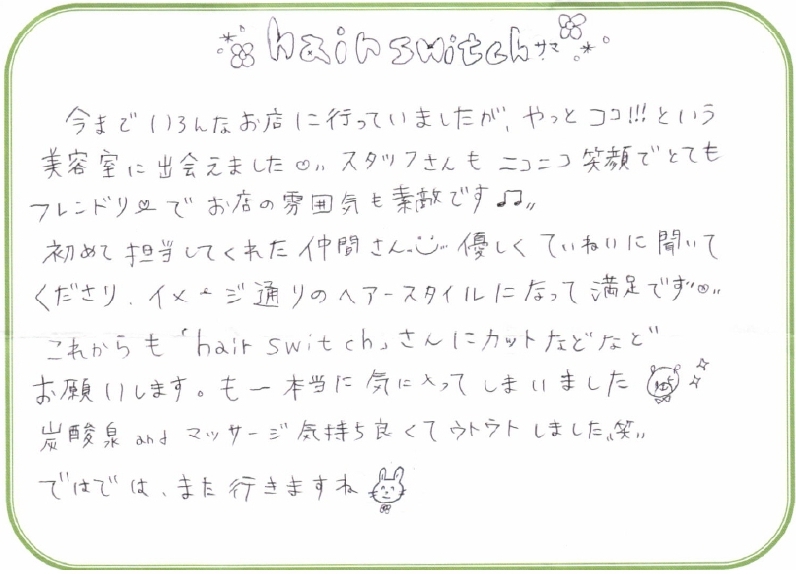 hair switch サマ
今まで いろんなお店に行っていましたが、やっと ココ!!!という
美容室に出会えました♡〃 スタッフさんも ニコニコ 笑顔でとても
フレンドリ♡で お店の雰囲気も素敵です♫〃
初めて担当してくれた仲間さん〃優しく ていねいに聞いて
くださり、イメージ通りのヘアースタイルになって満足です♡〃
これからも「hair switch」さんにカットなどなど
お願いします。も一本当に気に入ってしまいました
炭酸泉 and マッサージ気持ち良くてウトウトしました〃笑〃
ではでは、また行きますね